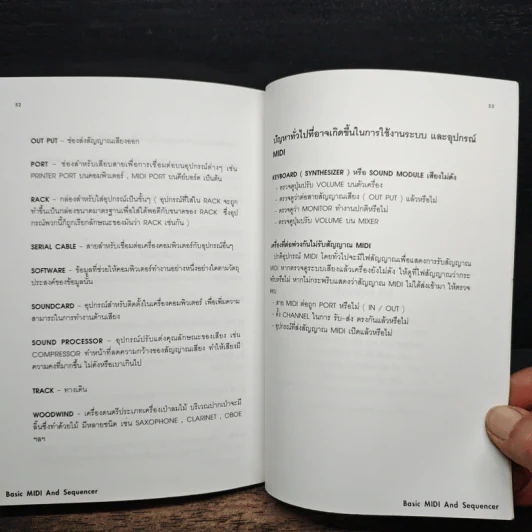 52
OUT PUT – ช่องส่งสัญญาณเสียงออก
PORT – ช่องสำหรับเสียบสายเพื่อการเชื่อมต่อบนอุปกรณ์ต่างๆ เช่น
PRINTER PORT บนคอมพิวเตอร์ , MIDI PORT บนคีย์บอร์ด เป็นต้น
RACK – กล่องสำหรับใส่อุปกรณ์เป็นชั้นๆ ( อุปกรณ์ที่ใส่ใน RACK จะถูก
ทำขึ้นเป็นกล่องขนาดมาตรฐานเพื่อใส่ได้พอดีกับขนาดของ RACK ซึ่งอุป
กรณ์พวกนี้ก็ถูกเรียกลักษณะของมันว่า RACK เช่นกัน )
SERIAL CABLE – สายสำหรับเชื่อมต่อเครื่องคอมพิวเตอร์กับอุปกรณ์อื่นๆ
SOFTWARE – ข้อมูลที่ช่วยให้คอมพิวเตอร์ทำงานอย่างหนึ่งอย่างใดตามวัตถุ
ประสงค์ของข้อมูลนั้น
SOUNDCARD – อุปกรณ์สำหรับติดตั้งในเครื่องคอมพิวเตอร์ เพื่อเพิ่มความ
สามารถในการทำงานด้านเสียง
SOUND PROCESSOR – อุปกรณ์ปรับแต่งคุณลักษณะของเสียง เช่น
COMPRESSOR ทำหน้าที่ลดความกว้างของสัญญาณเสียง ทำให้เสียงมี
ความคงที่มากขึ้น ไม่ดังหรือเบาเกินไป
TRACK – ทางเดิน
WOODWIND – เครื่องดนตรีประเภทเครื่องเป่าลมไม้ บริเวณปากเป่าจะมี
ลิ้นซึ่งทำด้วยไม้ มีหลายชนิด เช่น SAXOPHONE , CLARINET , OBOE
ฯลฯ
Basic MIDI And Sequencer
53
ปัญหาทั่วไปที่อาจเกิดขึ้นในการใช้งานระบบ และอุปกรณ์
MIDI
KEYBOARD ( SYNTHESIZER ) หรือ SOUND MODULE เสียงไม่ดัง
- ตรวจดูปุ่มปรับ VOLUME บนตัวเครื่อง
- ตรวจดูว่าต่อสายสัญญาณเสียง ( OUT PUT ) แล้วหรือไม่
- ตรวจดูว่า MONITOR ทำงานปกติหรือไม่
- ตรวจดูปุ่มปรับ VOLUME บน MIXER
เครื่องที่ต่อพ่วงกันไม่รับสัญญาณ MIDI
ปกติอุปกรณ์ MIDI โดยทั่วไปจะมีไฟสัญญาณเพื่อแสดงการรับสัญญาณ
MIDI หากตรวจดูระบบเสียงแล้วเครื่องยังไม่ดัง ให้ดูที่ไฟสัญญาณว่ากระ
พริบหรือไม่ หากไม่กระพริบแสดงว่าสัญญาณ MIDI ไม่ได้ส่งเข้ามา ให้ตรวจ
- สาย MIDI ต่อถูก PORT หรือไม่ ( IN / OUT )
- ตั้ง CHANNEL ในการ รับ-ส่ง ตรงกันแล้วหรือไม่
- อุปกรณ์ที่ส่งสัญญาณ MIDI เปิดแล้วหรือไม่
Basic MIDI And Sequencer